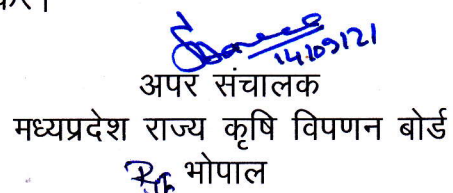 14/09/21
अपर संचालक
मध्यप्रदेश राज्य कृषि विपणन बोर्ड
भोपाल